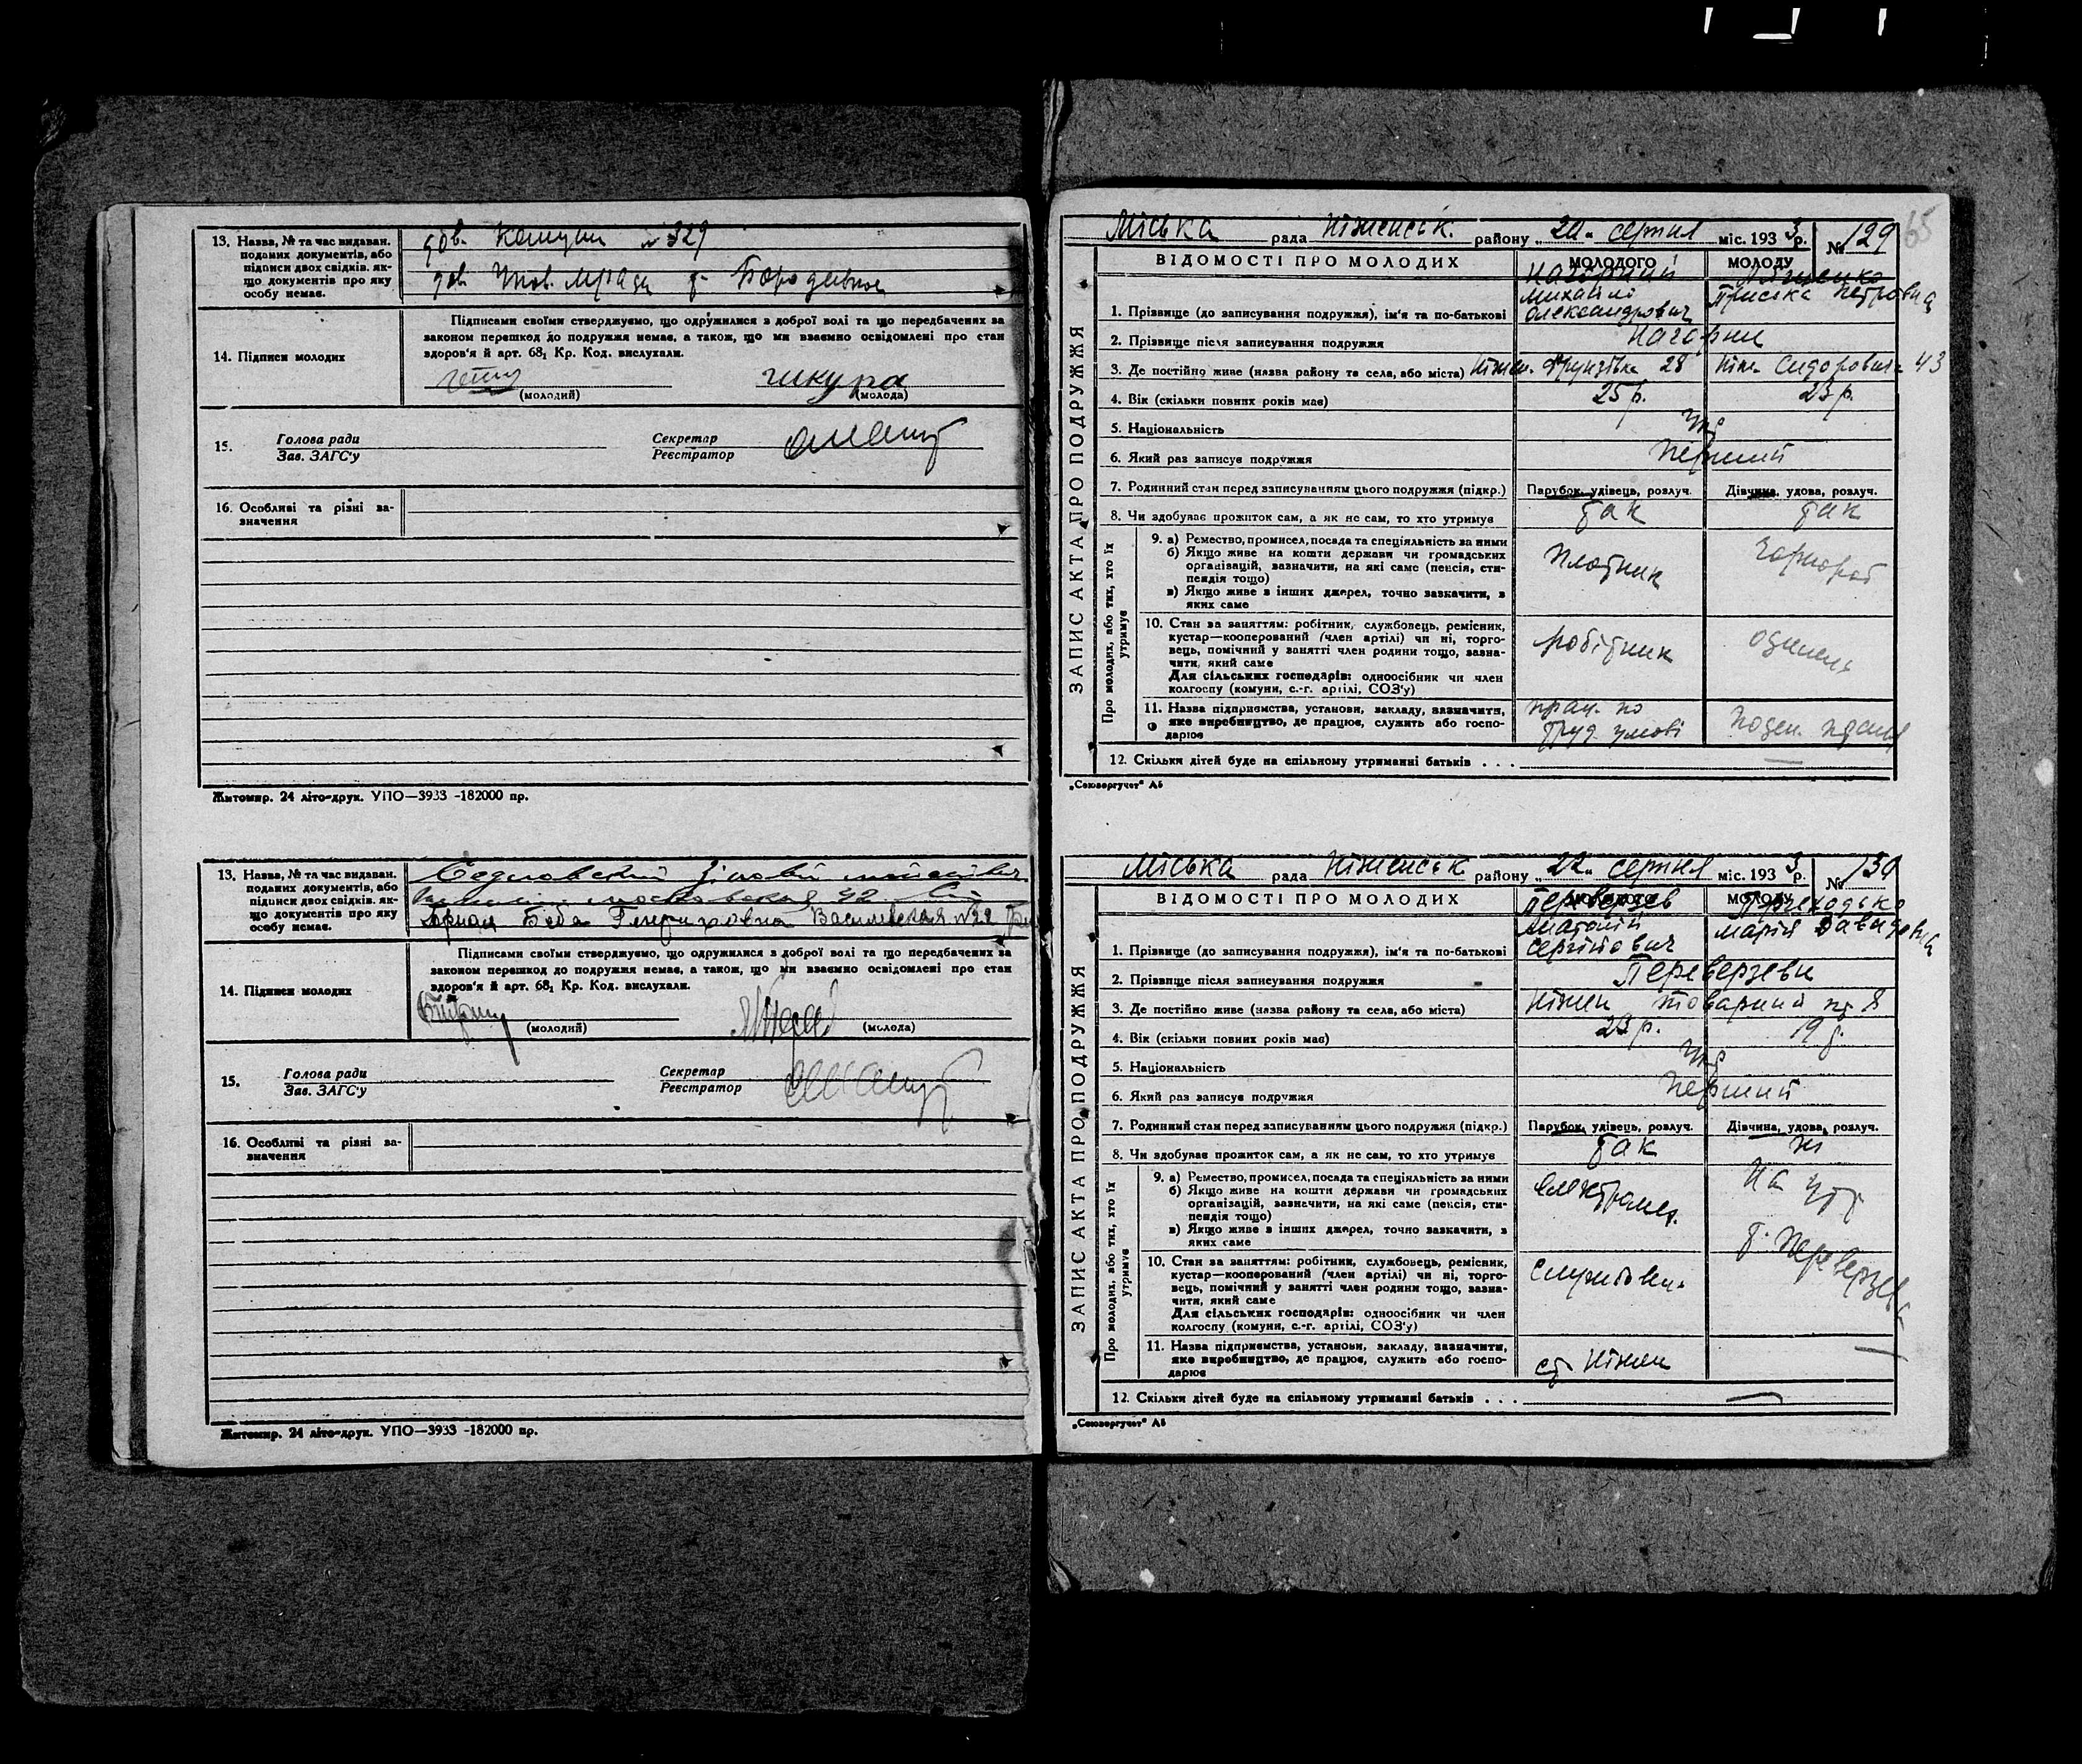 13. Назва, № та час видаван.
поданих документів, або
підписи двох свідків, як-
що документів про яку
особу немає.
дов. Комуни № 329
дов.
14. Підписи молодих
Підписами своїми стверджуємо, що одружилися з доброї волі та що передбачених за
законом перешкод до подружжя немає, а також, що ми взаємно освідомлені про стан
здоров'я й арт. 68, Кр. Код. вислухали.
(молодий)
(молода)
15. Голова ради
Зав. ЗАГС'у
Секретар
Реєстратор
16. Особливі та різні за-
значення
Житомир. 24 літо-друк. УПО—3933 -182000 пр.
13. Назва, № та час видаван.
поданих документів, або
підписи двох свідків, як-
що документів про яку
особу немає.
42
Беба Генриховна Василевская №22
14. Підписи молодих
Підписами своїми стверджуємо, що одружилися з доброї волі та що передбачених за
законом перешкод до подружжя немає, а також, що ми взаємно освідомлені про стан
здоров'я й арт. 68, Кр. Код. вислухали.
(молодий)
(молода)
15. Голова ради
Зав. ЗАГС'у
Секретар
Реєстратор
16. Особливі та різні за-
значення
Житомир. 24 літо-друк. УПО—3933 -182000 пр.
65
Міська рада Ніженськ. району „20„ серпня міс. 1933р. № 129
ЗАПИС АКТА ПРО ПОДРУЖЖЯ
ВІДОМОСТІ ПРО МОЛОДИХ
МОЛОДОГО
МОЛОДУ
1. Прізвище (до записування подружжя), ім'я та по-батькові
Нагорний
Михайло
Олександрович
Приська Петровна
2. Прізвище після записування подружжя
Нагорни
3. Де постійно живе (назва району та села, або міста) Ніжен. Фрунзівка 28 Ніж. Сидоровича 43
4. Вік (скільки повних років має) 25 р. 23 р.
5. Національність Укр
6. Який раз записує подружжя Перший
7. Родинний стан перед записуванням цього подружжя (підкр.) Парубок, удівець, розлуч. Дівчина, удова, розлуч.
8. Чи здобуває прожиток сам, а як не сам, то хто утримує так так
Про молодих, або тих, хто їх утримує
9. а) Ремество, промисел, посада та спеціяльність за ними
б) Якщо живе на кошти держави чи громадських
організацій, зазначити, на які саме (пенсія, сти-
пендія тощо)
в) Якщо живе з інших джерел, точно зазначити, з
яких саме
Плотник
Чорнороб
10. Стан за заняттям: робітник, службовець, ремісник,
кустар—кооперований (член артілі) чи ні, торго-
вець, помічний у занятті член родини тощо, зазна-
чити, який саме
Для сільських господарів: одноосібник чи член
колгоспу (комуни, с.-г. артілі, СОЗ'у)
робітник
11. Назва підприємства, установи, закладу, зазначити,
яке виробництво, де працює, служить або госпо-
дарює
прац. по
труд. умові
поден.
12. Скільки дітей буде на спільному утриманні батьків . . .
„Союзоргучет" А5
Міська рада Ніженськ району „22„ серпня міс. 1933р. № 130
ЗАПИС АКТА ПРО ПОДРУЖЖЯ
ВІДОМОСТІ ПРО МОЛОДИХ
МОЛОДОГО
МОЛОДУ
1. Прізвище (до записування подружжя), ім'я та по-батькові
Переверзев
Анатолій
Сергійович
Приходько
Марія Давидовна
2. Прізвище після записування подружжя Переверзеви
3. Де постійно живе (назва району та села, або міста) Ніжен товарний пр 8
4. Вік (скільки повних років має) 23 р. 19 р.
5. Національність Укр
6. Який раз записує подружжя Перший
7. Родинний стан перед записуванням цього подружжя (підкр.) Парубок, удівець, розлуч. Дівчина, удова, розлуч.
8. Чи здобуває прожиток сам, а як не сам, то хто утримує так ні
Про молодих, або тих, хто їх утримує
9. а) Ремество, промисел, посада та спеціяльність за ними
б) Якщо живе на кошти держави чи громадських
організацій, зазначити, на які саме (пенсія, сти-
пендія тощо)
в) Якщо живе з інших джерел, точно зазначити, з
яких саме
електром.
На утр
т. Переверзева
10. Стан за заняттям: робітник, службовець, ремісник,
кустар—кооперований (член артілі) чи ні, торго-
вець, помічний у занятті член родини тощо, зазна-
чити, який саме
Для сільських господарів: одноосібник чи член
колгоспу (комуни, с.-г. артілі, СОЗ'у)
службовец.
11. Назва підприємства, установи, закладу, зазначити,
яке виробництво, де працює, служить або госпо-
дарює
ст Ніжен
12. Скільки дітей буде на спільному утриманні батьків . . . —
„Союзоргучет" А5